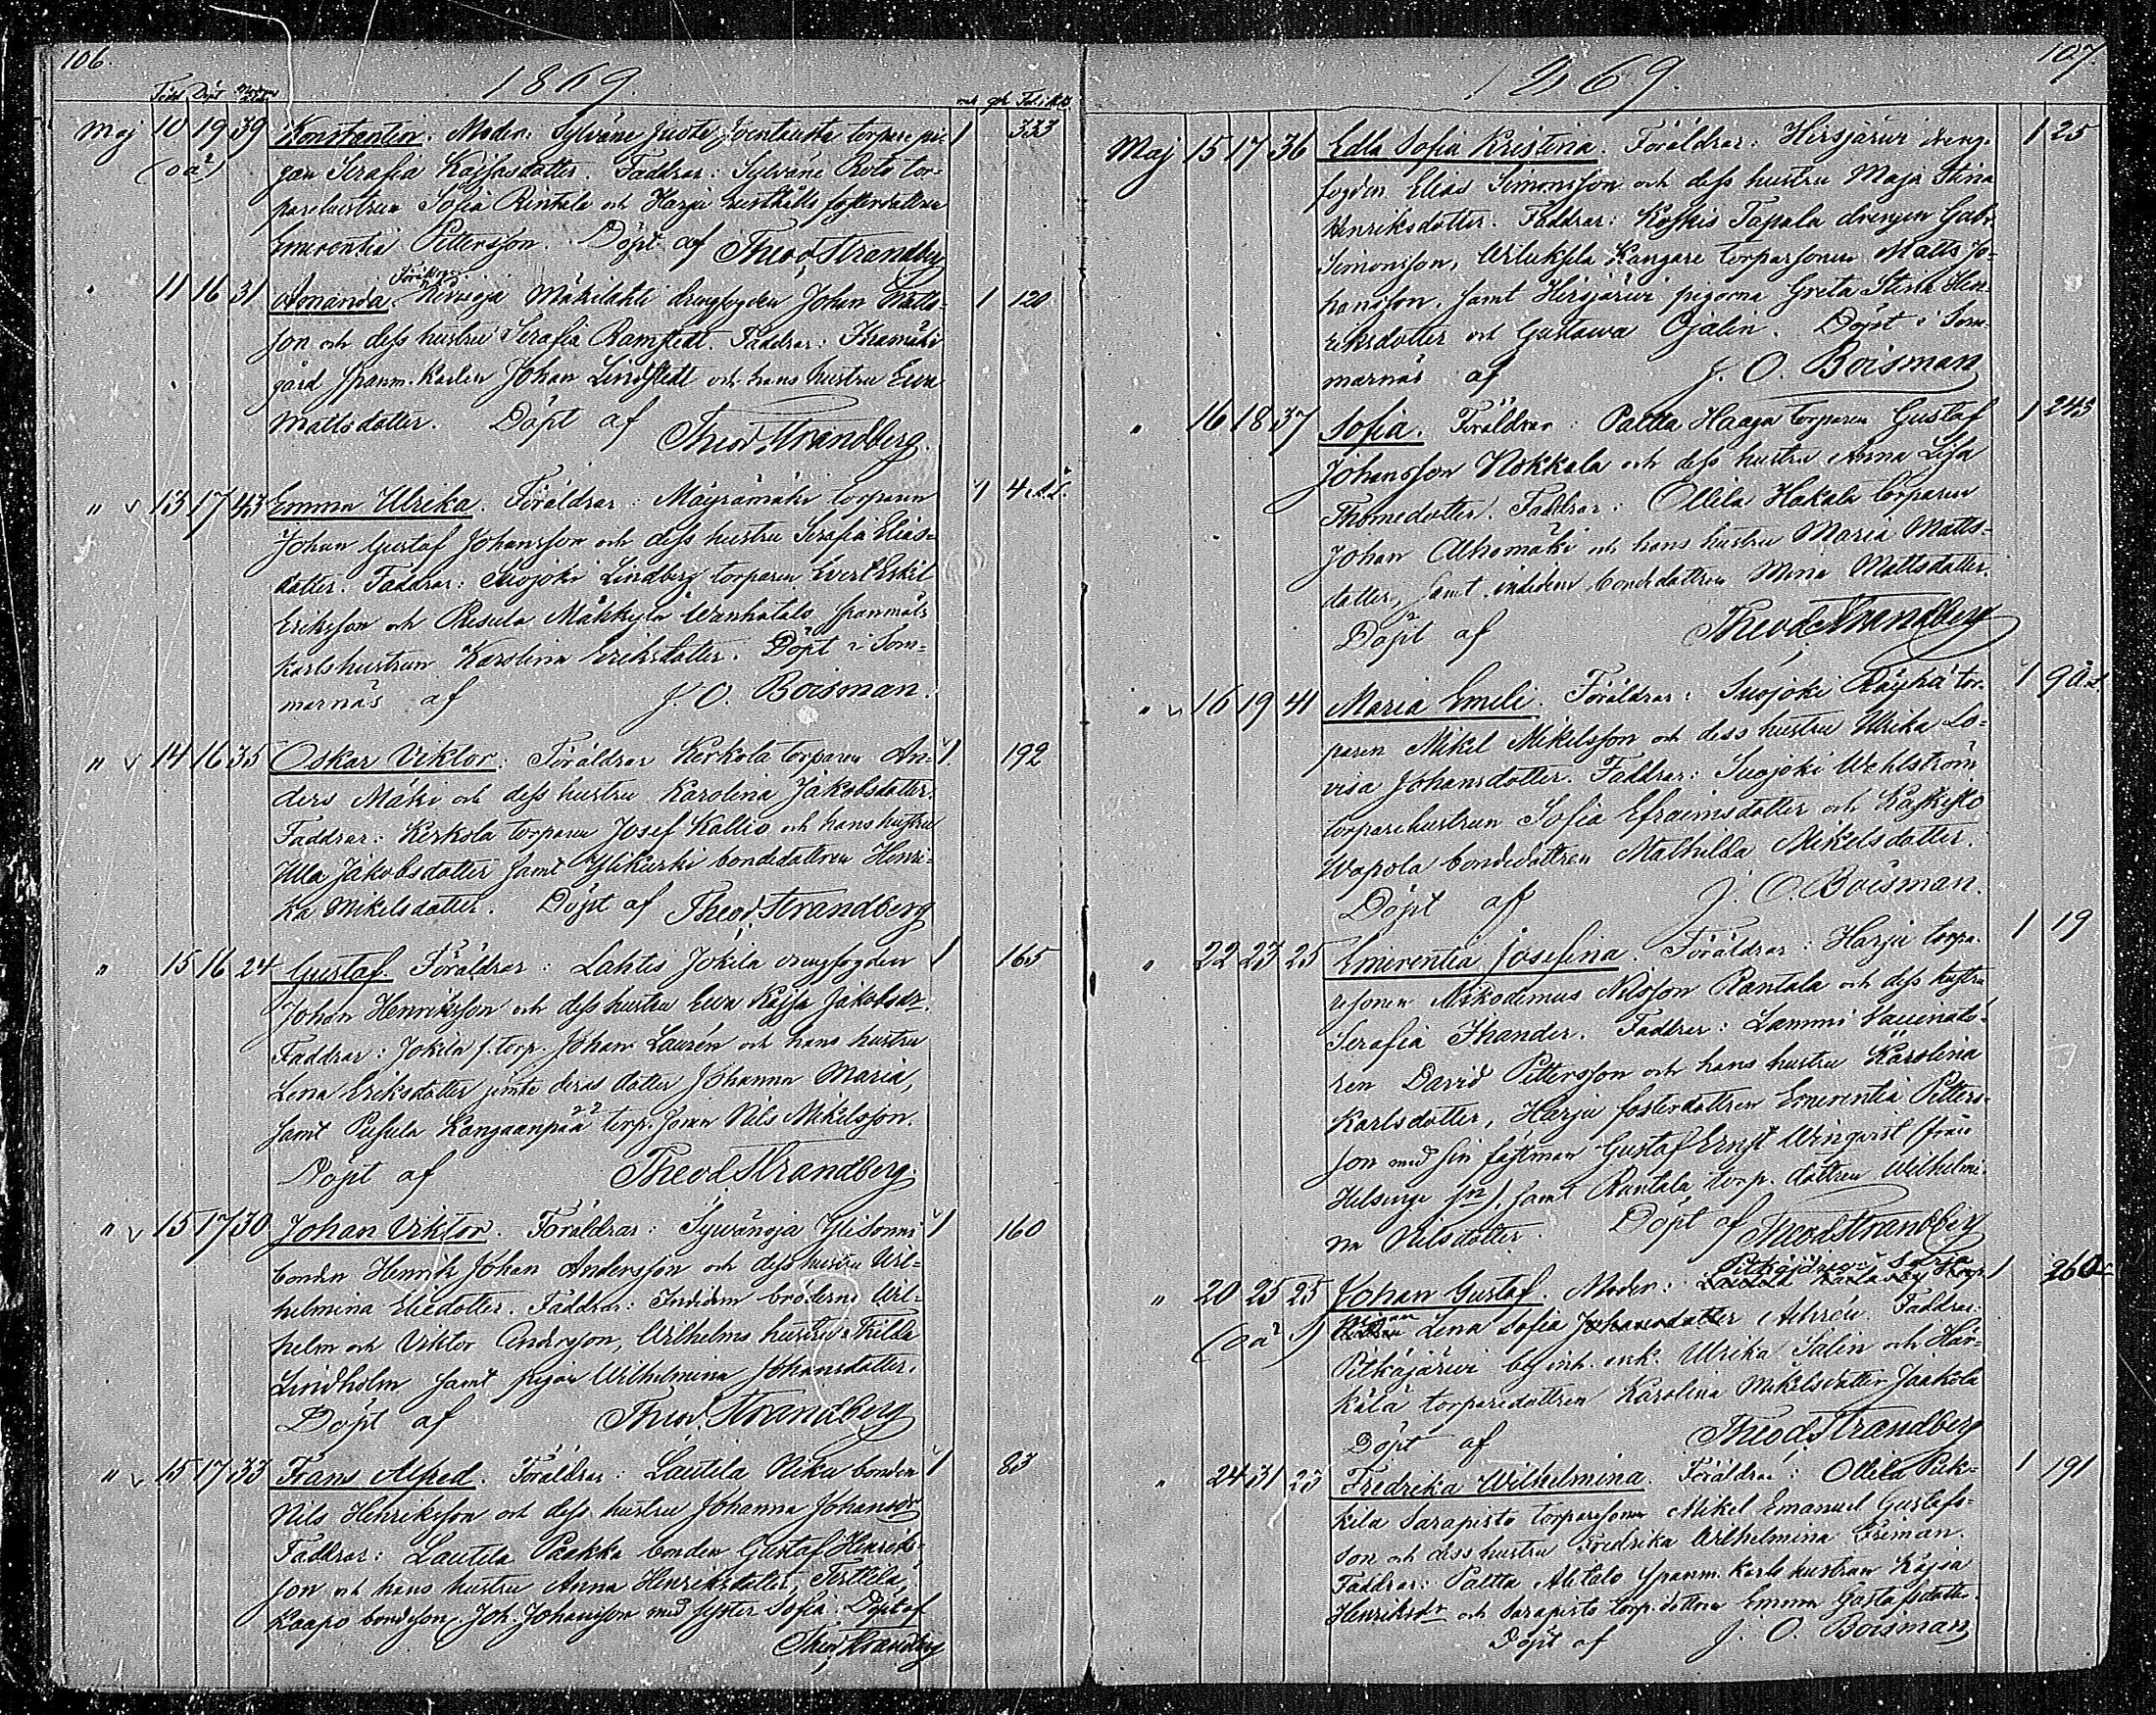 106.
1869.
Född Döpt Moders ålder
Maj 10 19 39 Konstantin. Moder: Sylväne torpare pi- 1 333
(oä) gan Serafia Kaijsasdotter. Faddrar: Sylväne Roto tor-
parehustrun Sofia Rintala och Harju husthålls fosterdottren
Emerentia Pettersson. Döpt af Theod Strandberg
" 11 16 31 Amanda. Föräldrar: Mäkilahti drengfogden Johan Matts- 1 120
son och dess hustru Serafia Ramstedt. Faddrar:
gård spanm. karlen Johan Lindstedt och hans hustru Eva
Mattsdotter. Döpt af Theod. Strandberg.
" v 13 17 43 Emma Ulrika. Föräldrar: Mäyrämäki torparen 1 4
Johan Gustaf Johansson och dess hustru Serafia Elias-
dotter. Faddrar: Suojoki Lindberg torparen Evert Eskil
Eriksson och Resula Mäkkylä Wanhatalo spanmåls
karlshustrun Karolina Eriksdotter. Döpt i Som-
marnäs af J. O. Boisman.
" v 14 16 35 Oskar Viktor. Föräldrar Kerkola torparen An- 1 192
ders Mäki och dess hustru Karolina Jakobsdotter.
Faddrar: Kerkola torparen Josef Kallio och hans hustru
Ulla Jakobsdotter samt Ylikurki bondedottren Henri-
ka Mikelsdotter. Döpt af Theod. Strandberg
" 15 16 24 Gustaf. Föräldrar: Lahtis Jokila drengfogden 1 165
Johan Henriksson och dess hustru Eva Kajsa Jakobsdr.
Faddrar: Jokila s. torp. Johan Laurén och hans hustru
Lena Eriksdotter jemte deras dotter Johanna Maria,
samt Pusula Kangaanpää torp. sonen Nils Mikelsson.
Döpt af Theod Strandberg.
" v 15 17 30 Johan Viktor. Föräldrar: Syvänoja Ylisonni 1 160
bonden Henrik Johan Andersson och dess hustru Wil-
helmina Eliedotter. Faddrar: Indidem bröderne Wil-
helm och Viktor Andersson, Wilhelms hustru Thilda
Lindholm samt pigan Wilhelmina Johansdotter.
Döpt af Theod. Strandberg
" v 15 17 33 Frans Alfred. Föräldrar: Lautela Nika bonden 1 83
Nils Henriksson och dess hustru Johanna Johansdr
Faddrar: Lautela Paakka bonden Gustaf Henriks-
son och hans hustru Anna Henriksdotter,
Kaapo bondeson Joh. Johansson med syster Sofia. Döpt af
Theod. Strandberg
107.
1869.
Maj 15 17 36 Edla Sofia Kristina. Föräldrar: Hirsjärwi dreng- 1 25
fogden Elias Simonsson och dess hustru Maja Stina
Henriksdotter. Faddrar: Koskis Tapala drengen Gabr.
Simonsson, Kangare torparsonen Matts Jo-
hansson, samt Hirsjärwi pigorna Greta Stina Hen-
riksdotter och Gustawa Ojalin. Döpt i Som-
marnäs af J. O. Boisman
" 16 18 37 Sofia. Föräldrar: Paltta Haaga torparen Gustaf 1 243
Johansson Nokkala och dess hustru Anna Lisa
Thomedotter. Faddrar: Ollila Hakala torparen
Johan Alhomäki och hans hustru Maria Matts-
dotter, samt indidem bondedottren Mina Mattsdotter.
Döpt af Theod Strandberg
" v 16 19 41 Maria Emili. Föräldrar: Suojoki Räyhä tor- 1 9
paren Mikel Mikelsson och dess hustru Ulrika Lo-
visa Johansdotter. Faddrar: Suojoki Wehlström
torparehustrun Sofia Efraimsdotter och Kaskisto
Wapola bondedottren Mathilda Mikelsdotter.
Döpt af J. O. Boisman.
" 22 23 25 Emerentia Josefina. Föräldrar: Harju torpa- 1 19
resonen Nikodemus Nilsson Rantala och dess hustru
Serafia Thander. Faddrar: Lammi
ren David Pettersson och hans hustru Karolina
Karlsdotter, Harju fosterdottren Emerentia Petters-
son med sin fästman Gustaf Ernst Winqvist (från
Helsinge sn), samt Rantala torp. dottren Wilhelmi-
na Nilsdotter. Döpt af Theod Strandberg
" 20 25 25 Johan Gustaf. Moder: Pitkäjärwi 1 260
(oä) pigan Lena Sofia Johansdotter Ahrén. Faddrar:
Pitkäjärwi bg inh. enk. Ulrika Salin och Här-
kälä torparedottren Karolina Mikelsdotter Jaakola
Döpt af Theod. Strandberg
" 24 31 23 Fredrika Wilhelmina. Föräldrar: Ollila Puk- 1 191
kila Sarapisto torparsonen Mikel Emanuel Gustafs-
son och dess hustru Fredrika Wilhelmina Friman.
Faddrar: Paltta Alitalo spanm. karls hustrun Kajsa
Henriksdr och Sarapisto torp. dottren Emma Gustafsdotter.
Döpt af J. O. Boisman